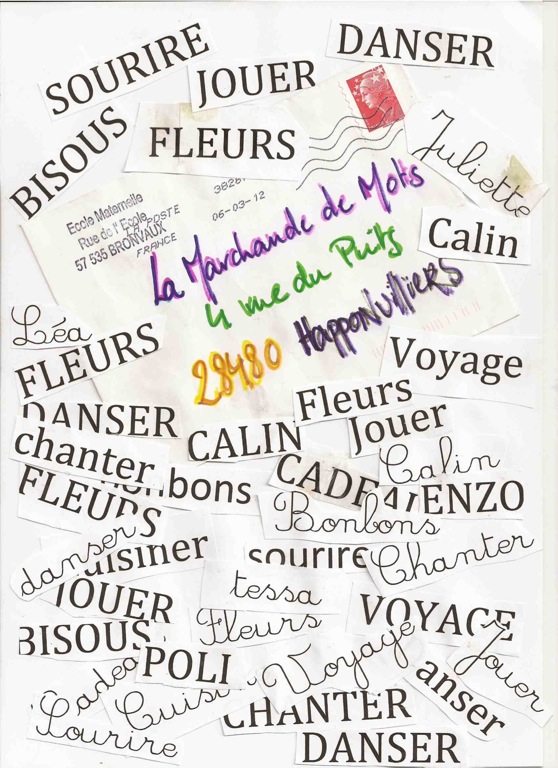 SOURIRE
DANSER
JOUER
BISOUS
FLEURS
Juliette
Ecole Maternelle
Rue de l'Ecole
57 535 BRONVAUX
LA POSTE
FRANCE
06-03-12
La Marchande de Mots
4 rue du Puits
28480 Happonvilliers
Calin
Léa
FLEURS
Voyage
Fleurs
DANSER
CALIN
Jouer
chanter
bons
Calin
FLEURS
CADEA
ENZO
Bonbons
danser
uisiner
sourire
Chanter
JOUER
tessa
Fleurs
VOYAGE
BISOUS
POLI
Voyage
Jouer
Cadea
Cuisi
CHANTER
anser
Sourire
DANSER